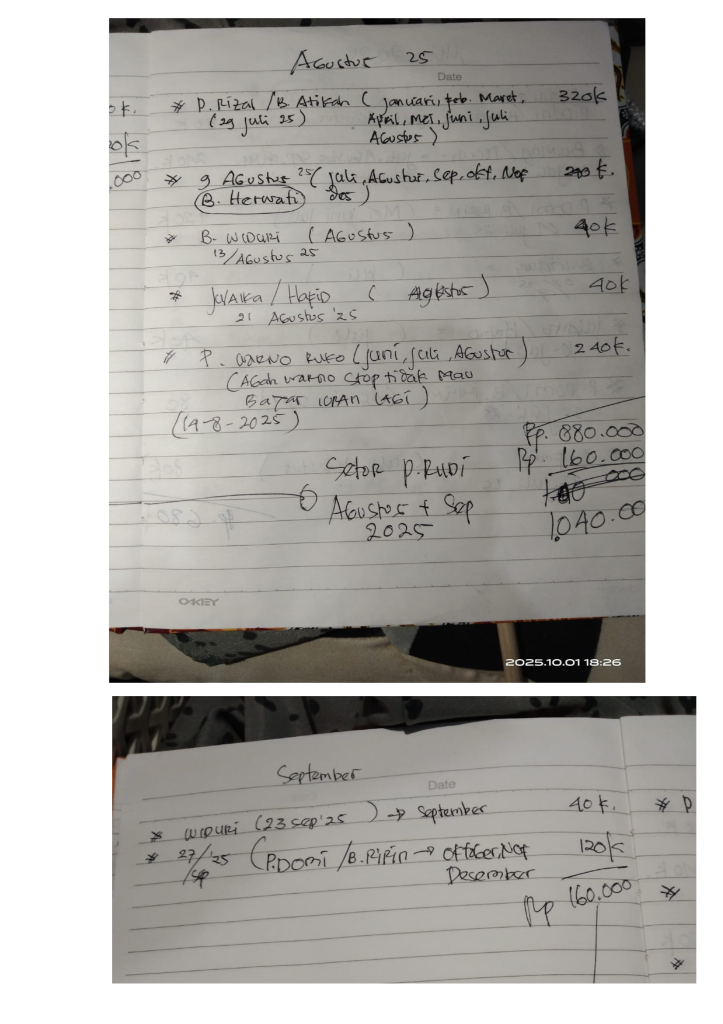 Agustus 25
Date
* P. Rizal / B. Atikah ( januari, feb. Maret, 320k
(29 juli 25) April, Mei, juni, juli
Agustus )
* 9 Agustus 25 ( juli, Agustus, Sep, okt, Nof 240k.
B. Herwati des )
* B. WIDURI ( Agustus ) 40k
13/Agustus 25
* / Hafid ( Agustus ) 40k
21 Agustus '25
* P. WARNO RUKO ( juni, juli, Agustus ) 240k.
( WARNO STOP tidak MAU
BAYAR IURAN LAGI )
(14-8-2025)
Rp. 880.000
Rp. 160.000
000
1.040.00
Setor P. RUDI
Agustus + Sep
2025
0k.
0k
.000
O-KEY
2025.10.01 18:26
September
Date
* WIDURI (23 Sep '25 ) → September 40k.
* 27/sep '25 ( P. Domi / B. Ripin → oktober, Nof 120k
Desember
Rp 160.000
* P
*
*